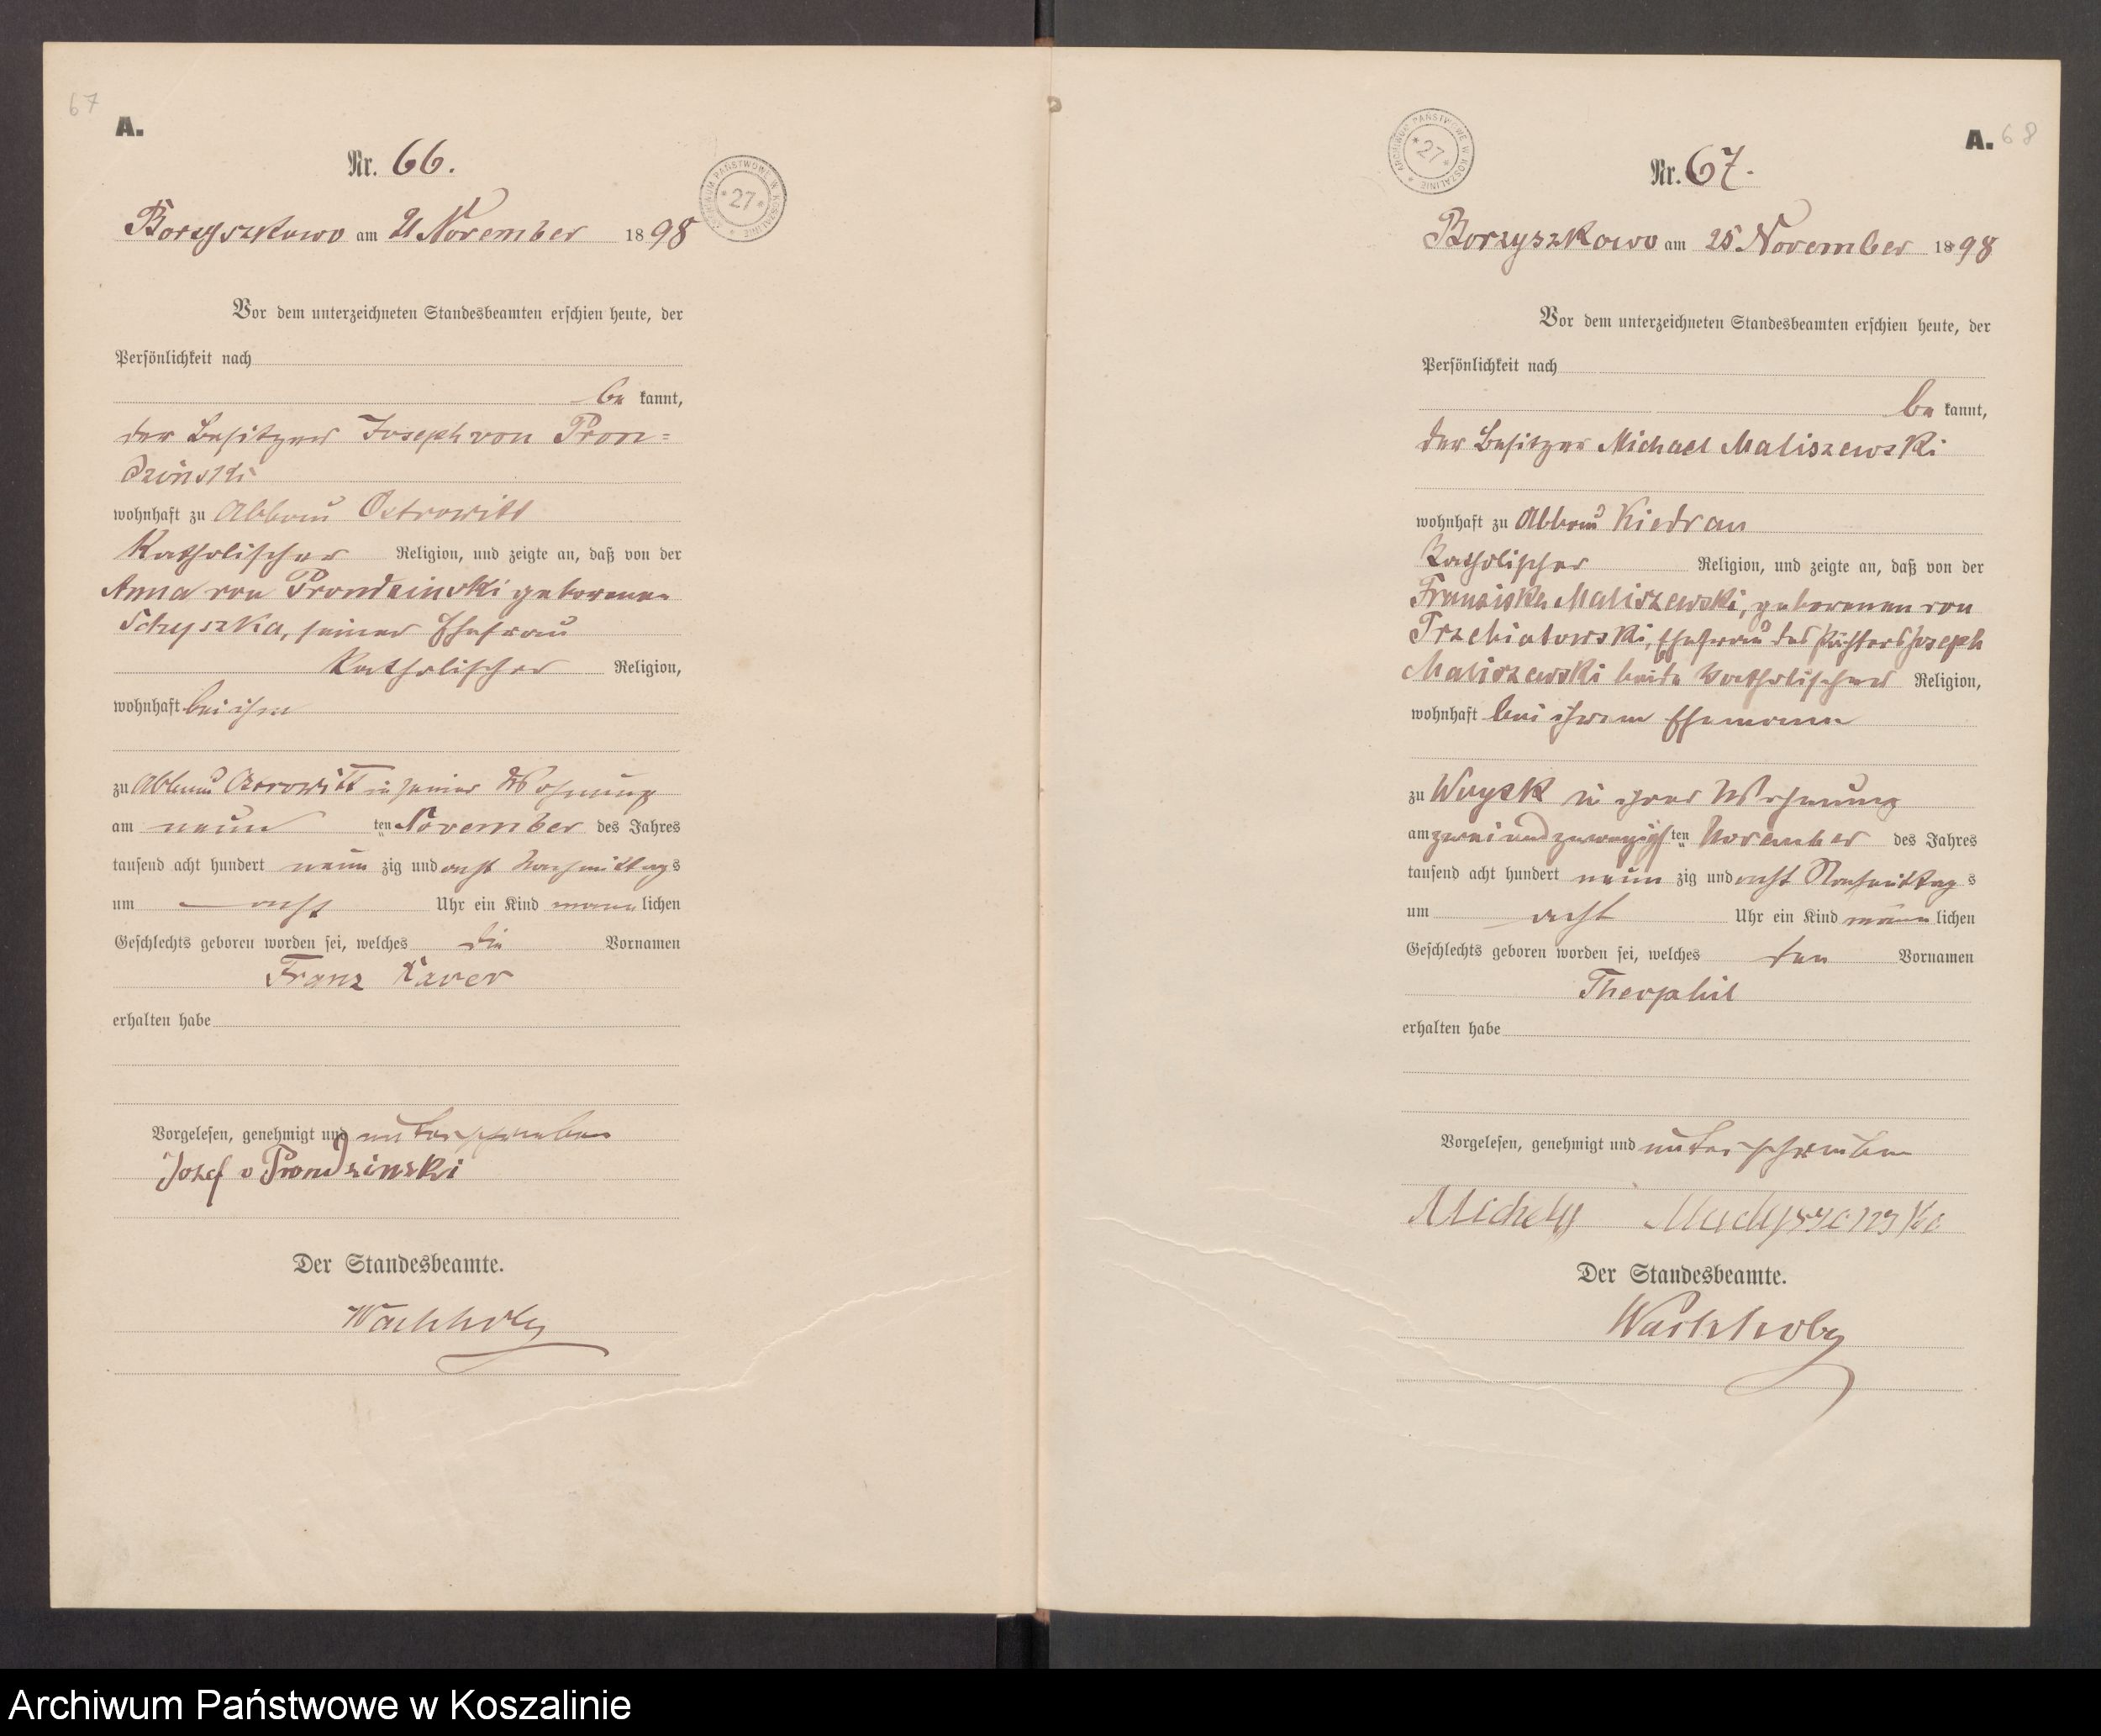 67
A.
Nr. 66.
ARCHIWUM PAŃSTWOWE W KOSZALINIE * 27 *
Borzyszkowo am 21 November 1898
Vor dem unterzeichneten Standesbeamten erschien heute, der
Persönlichkeit nach
be kannt,
der Besitzer Joseph von Pron=
dzinski
wohnhaft zu Abbau Ostrowitt
Katholischer Religion, und zeigte an, daß von der
Anna von Prondzinski geborenen
Schyszka, seiner Ehefrau
Katholischer Religion,
wohnhaft bei ihm
zu Abbau Ostrowitt in seiner Wohnung
am neun ten November des Jahres
tausend acht hundert neun zig und acht Nachmittags
um acht Uhr ein Kind männlichen
Geschlechts geboren worden sei, welches die Vornamen
Franz Xaver
erhalten habe
Vorgelesen, genehmigt und unterschrieben
Jozef v Prondzinski
Der Standesbeamte.
Wachholz
68
A.
Nr. 67.
ARCHIWUM PAŃSTWOWE W KOSZALINIE * 27 *
Borzyszkowo am 25 November 1898
Vor dem unterzeichneten Standesbeamten erschien heute, der
Persönlichkeit nach
be kannt,
der Besitzer Michael Maliszewski
wohnhaft zu Abbau Kiedrau
Katholischer Religion, und zeigte an, daß von der
Franziska Maliszewski, geborenen von
Trzebiatowski, Ehefrau des Pächters Joseph
Maliszewski beide Katholischer Religion,
wohnhaft bei ihrem Ehemann
zu Woysk in ihrer Wohnung
am zwei und zwanzigsten November des Jahres
tausend acht hundert neun zig und acht Nachmittags
um acht Uhr ein Kind männlichen
Geschlechts geboren worden sei, welches den Vornamen
Theophil
erhalten habe
Vorgelesen, genehmigt und unterschrieben
Der Standesbeamte.
Wachholz
Archiwum Państwowe w Koszalinie